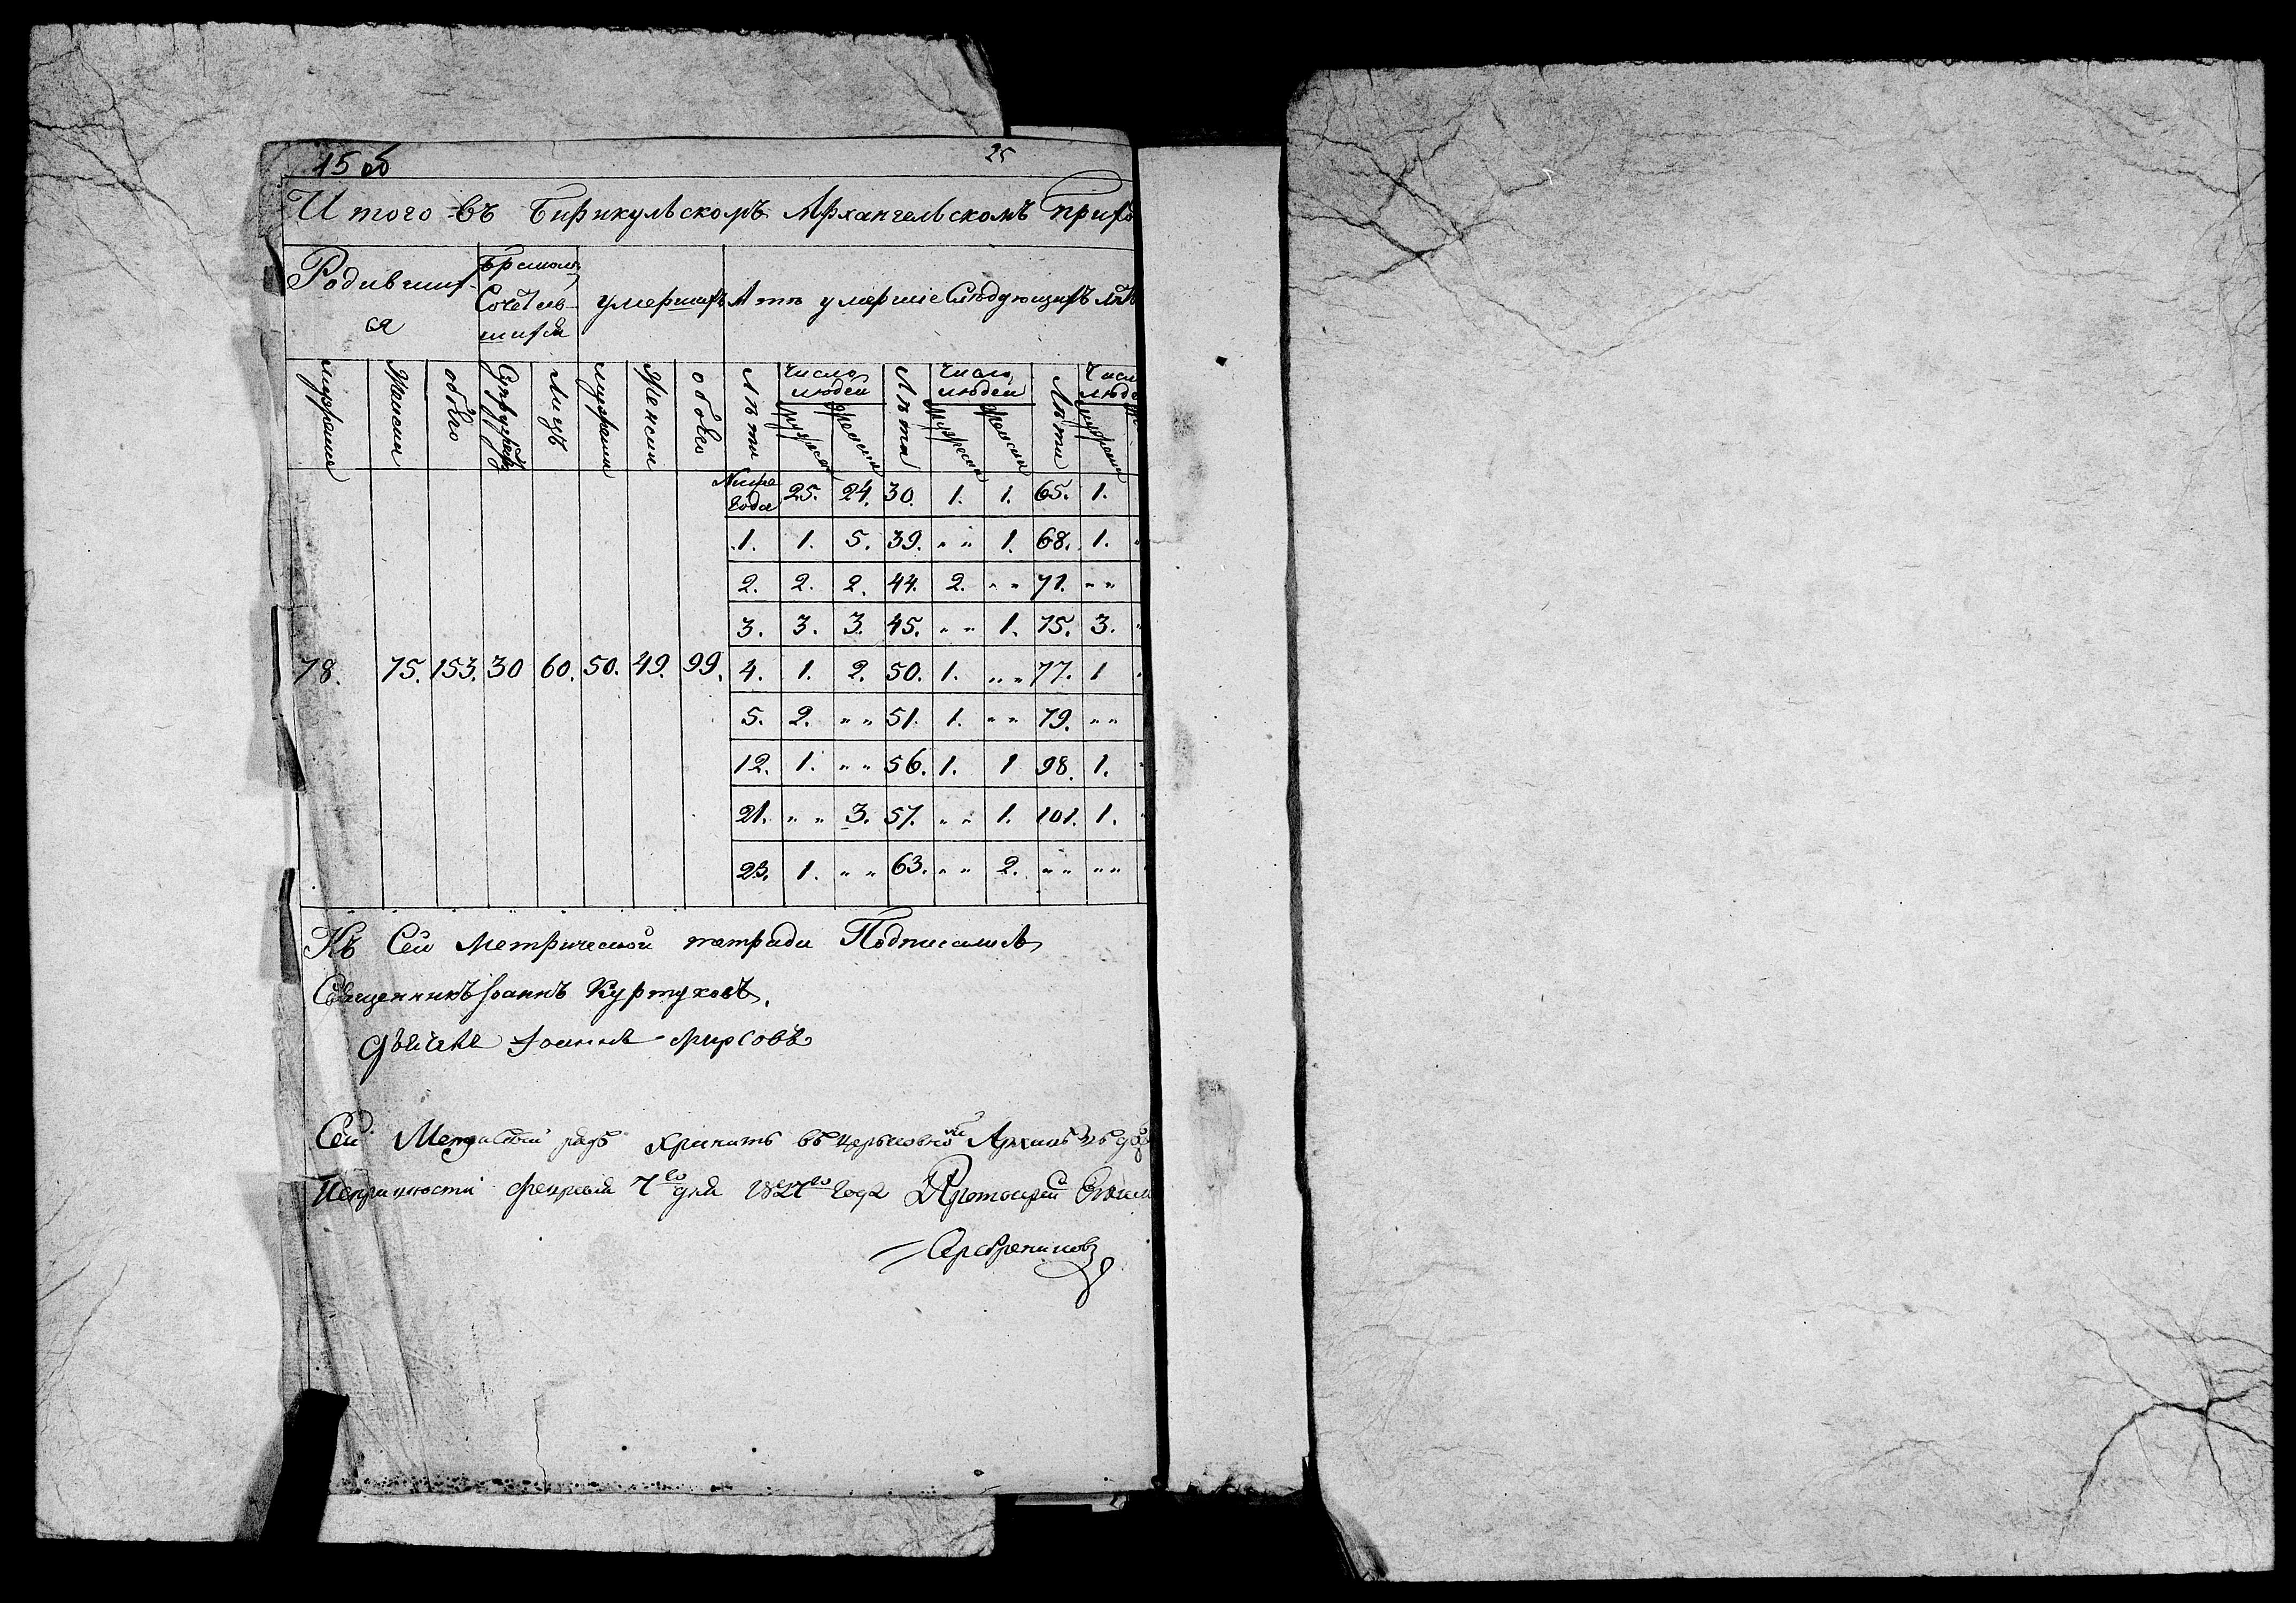 15 об
25
Итого въ Бирикульскомъ Архангельскомъ прихо
Родивших-
ся
Бракомъ
Сочетав-
шихся
умерших
А тѣ умершiе Слѣдующихъ лѣ
мужеска
Женска
обоего
Супружеств
Лицъ
мужеска
Женска
обоего
Лѣта
Число людей
мужеска
женска
Лѣта
Число людей
мужеска
женска
Лѣта
Числ
люде
мужеска
Ниже года 25. 24. 30. 1. 1. 65. 1.
1. 1. 5. 39. „ „ 1. 68. 1.
2. 2. 2. 44. 2. „ „ 71. „ „
3. 3. 3. 45. „ „ 1. 75. 3.
78. 75. 153. 30 60. 50. 49. 99. 4. 1. 2. 50. 1. „ „ 77. 1
5. 2. „ „ 51. 1. „ „ 79. „ „
12. 1. „ „ 56. 1. 1 98. 1.
21. „ „ 3. 57. „ „ 1. 101. 1.
23. 1. „ „ 63. „ „ 2. „ „ „ „
Къ Сей Метрической тетради Подписались
Священникъ Іоаннъ Куртуковъ.
Іоаннъ
Сей хранить въ церьковной Архивѣ въ
7го дня 1827го года Протоиерей